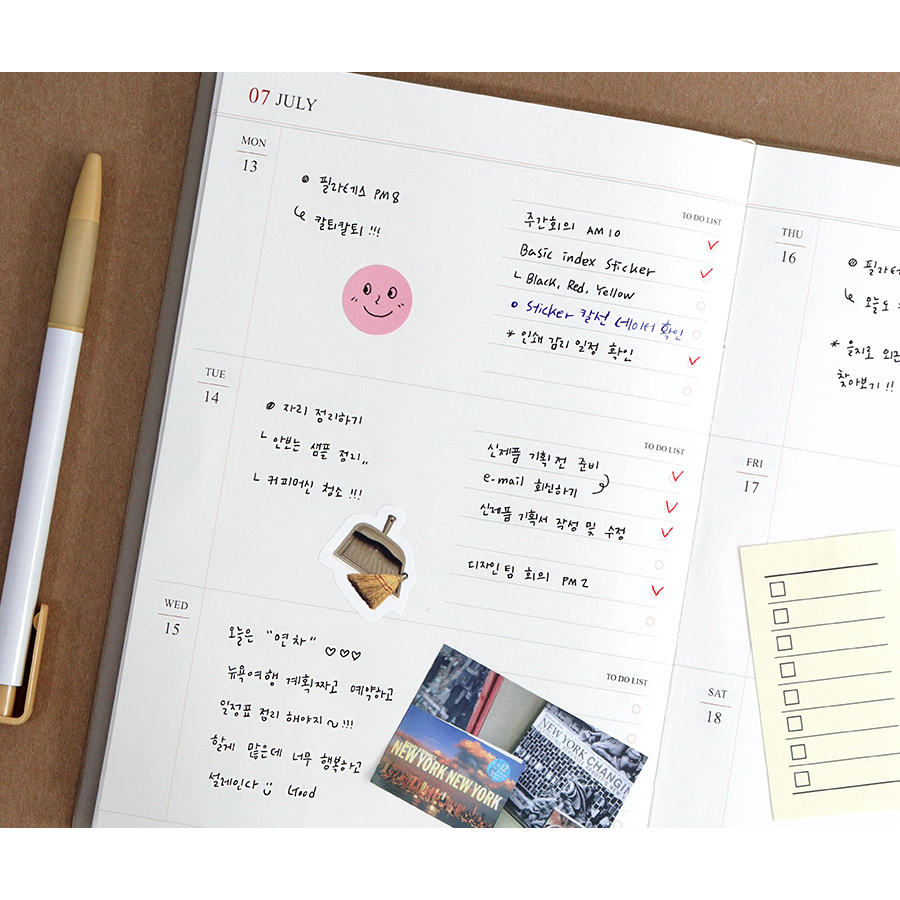 07 JULY
MON
13
필라테스 PM 8
칼퇴칼퇴!!!
TO DO LIST
주간회의 AM 10
Basic index sticker
Black, Red, Yellow
Sticker 칼선 데이터 확인
* 인쇄 감리 일정 확인
TUE
14
자리 정리하기
안보는 샘플 정리,,
커피머신 청소 !!!
TO DO LIST
신제품 기획전 준비
e-mail 회신하기
신제품 기획서 작성 및 수정
디자인팀 회의 PM 2
WED
15
오늘은 "연차" ♡♡♡
뉴욕여행 계획짜고 예약하고
일정표 정리 해야지~!!!
할게 많은데 너무 행복하고
설레인다 Good
TO DO LIST
NEW YORK NEW YORK
NEW YORK CHANGIN
THU
16
필라테
오늘도
* 을지로 외근
찾아보기!!
FRI
17
SAT
18